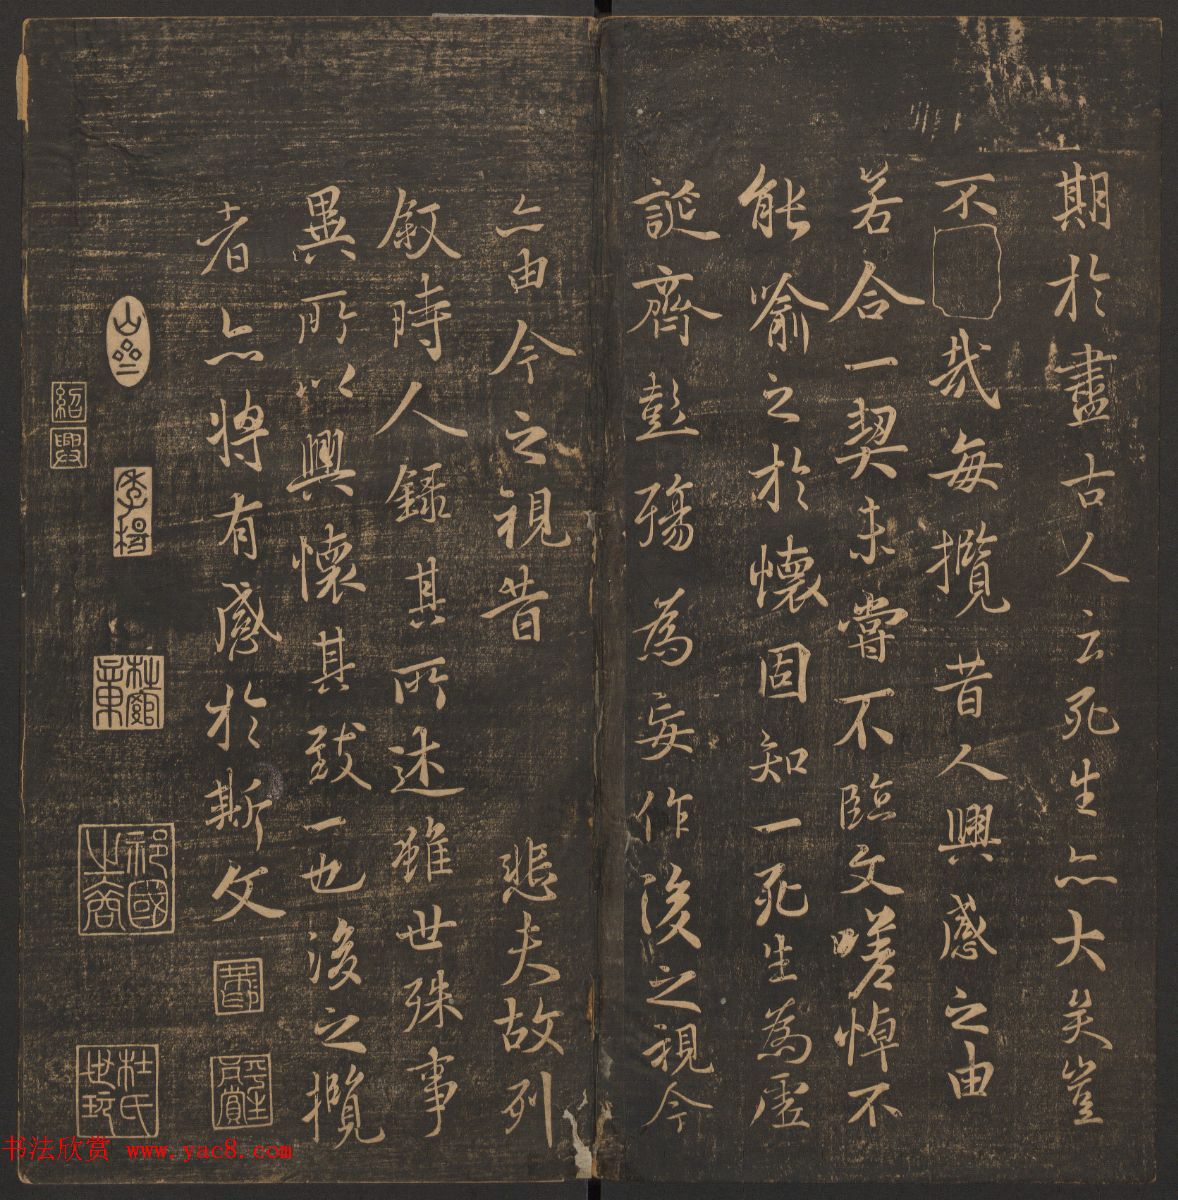 期於盡古人云死生亦大矣豈
不哉每攬昔人興感之由
若合一契未嘗不臨文嗟悼不
能喻之於懷固知一死生為虛
誕齊彭殤為妄作後之視今
亦由今之視昔 悲夫故列
敘時人錄其所述雖世殊事
異所以興懷其致一也後之攬
者亦將有感於斯文
紹興
杜氏世玩
书法欣赏 www.yac8.com